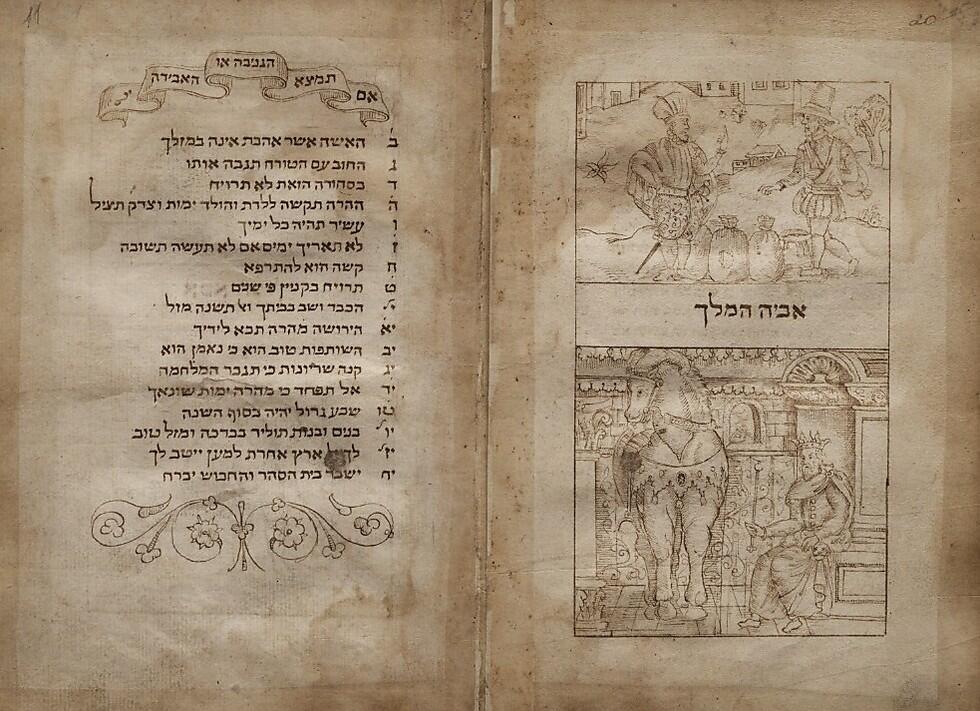 20
אביה המלך
11
אם תמצא הגנבה או האבידה
ב האישה אשר אהבת אינה במזלך
ג החוב עם הטורח תגבה אותו
ד בסחורה הזאת לא תרויח
ה ההרה תקשה ללדת והולד ימות וצדק תציל
ו עשיר תהיה כל ימיך
ז לא תאריך ימים אם לא תעשה תשובה
ח קשה הוא להתרפא
ט תרויח בקנין פי שנים
י׳ הכבד ושב בביתך תשנה מזל
יא הירושה מהרה תבא לידיך
יב השותפות טוב הוא כי נאמן הוא
יג קנה שריונות כי תגבר המלחמה
יד אל תפחד כי מהרה ימות שונאך
טו שבע גדול יהיה בסוף השנה
יו׳ בנים ובנות תוליד בברכה ומזל טוב
יז׳ ארץ אחרת למען ייטב לך
יח ישבר בית הסהר והחבוש יברח